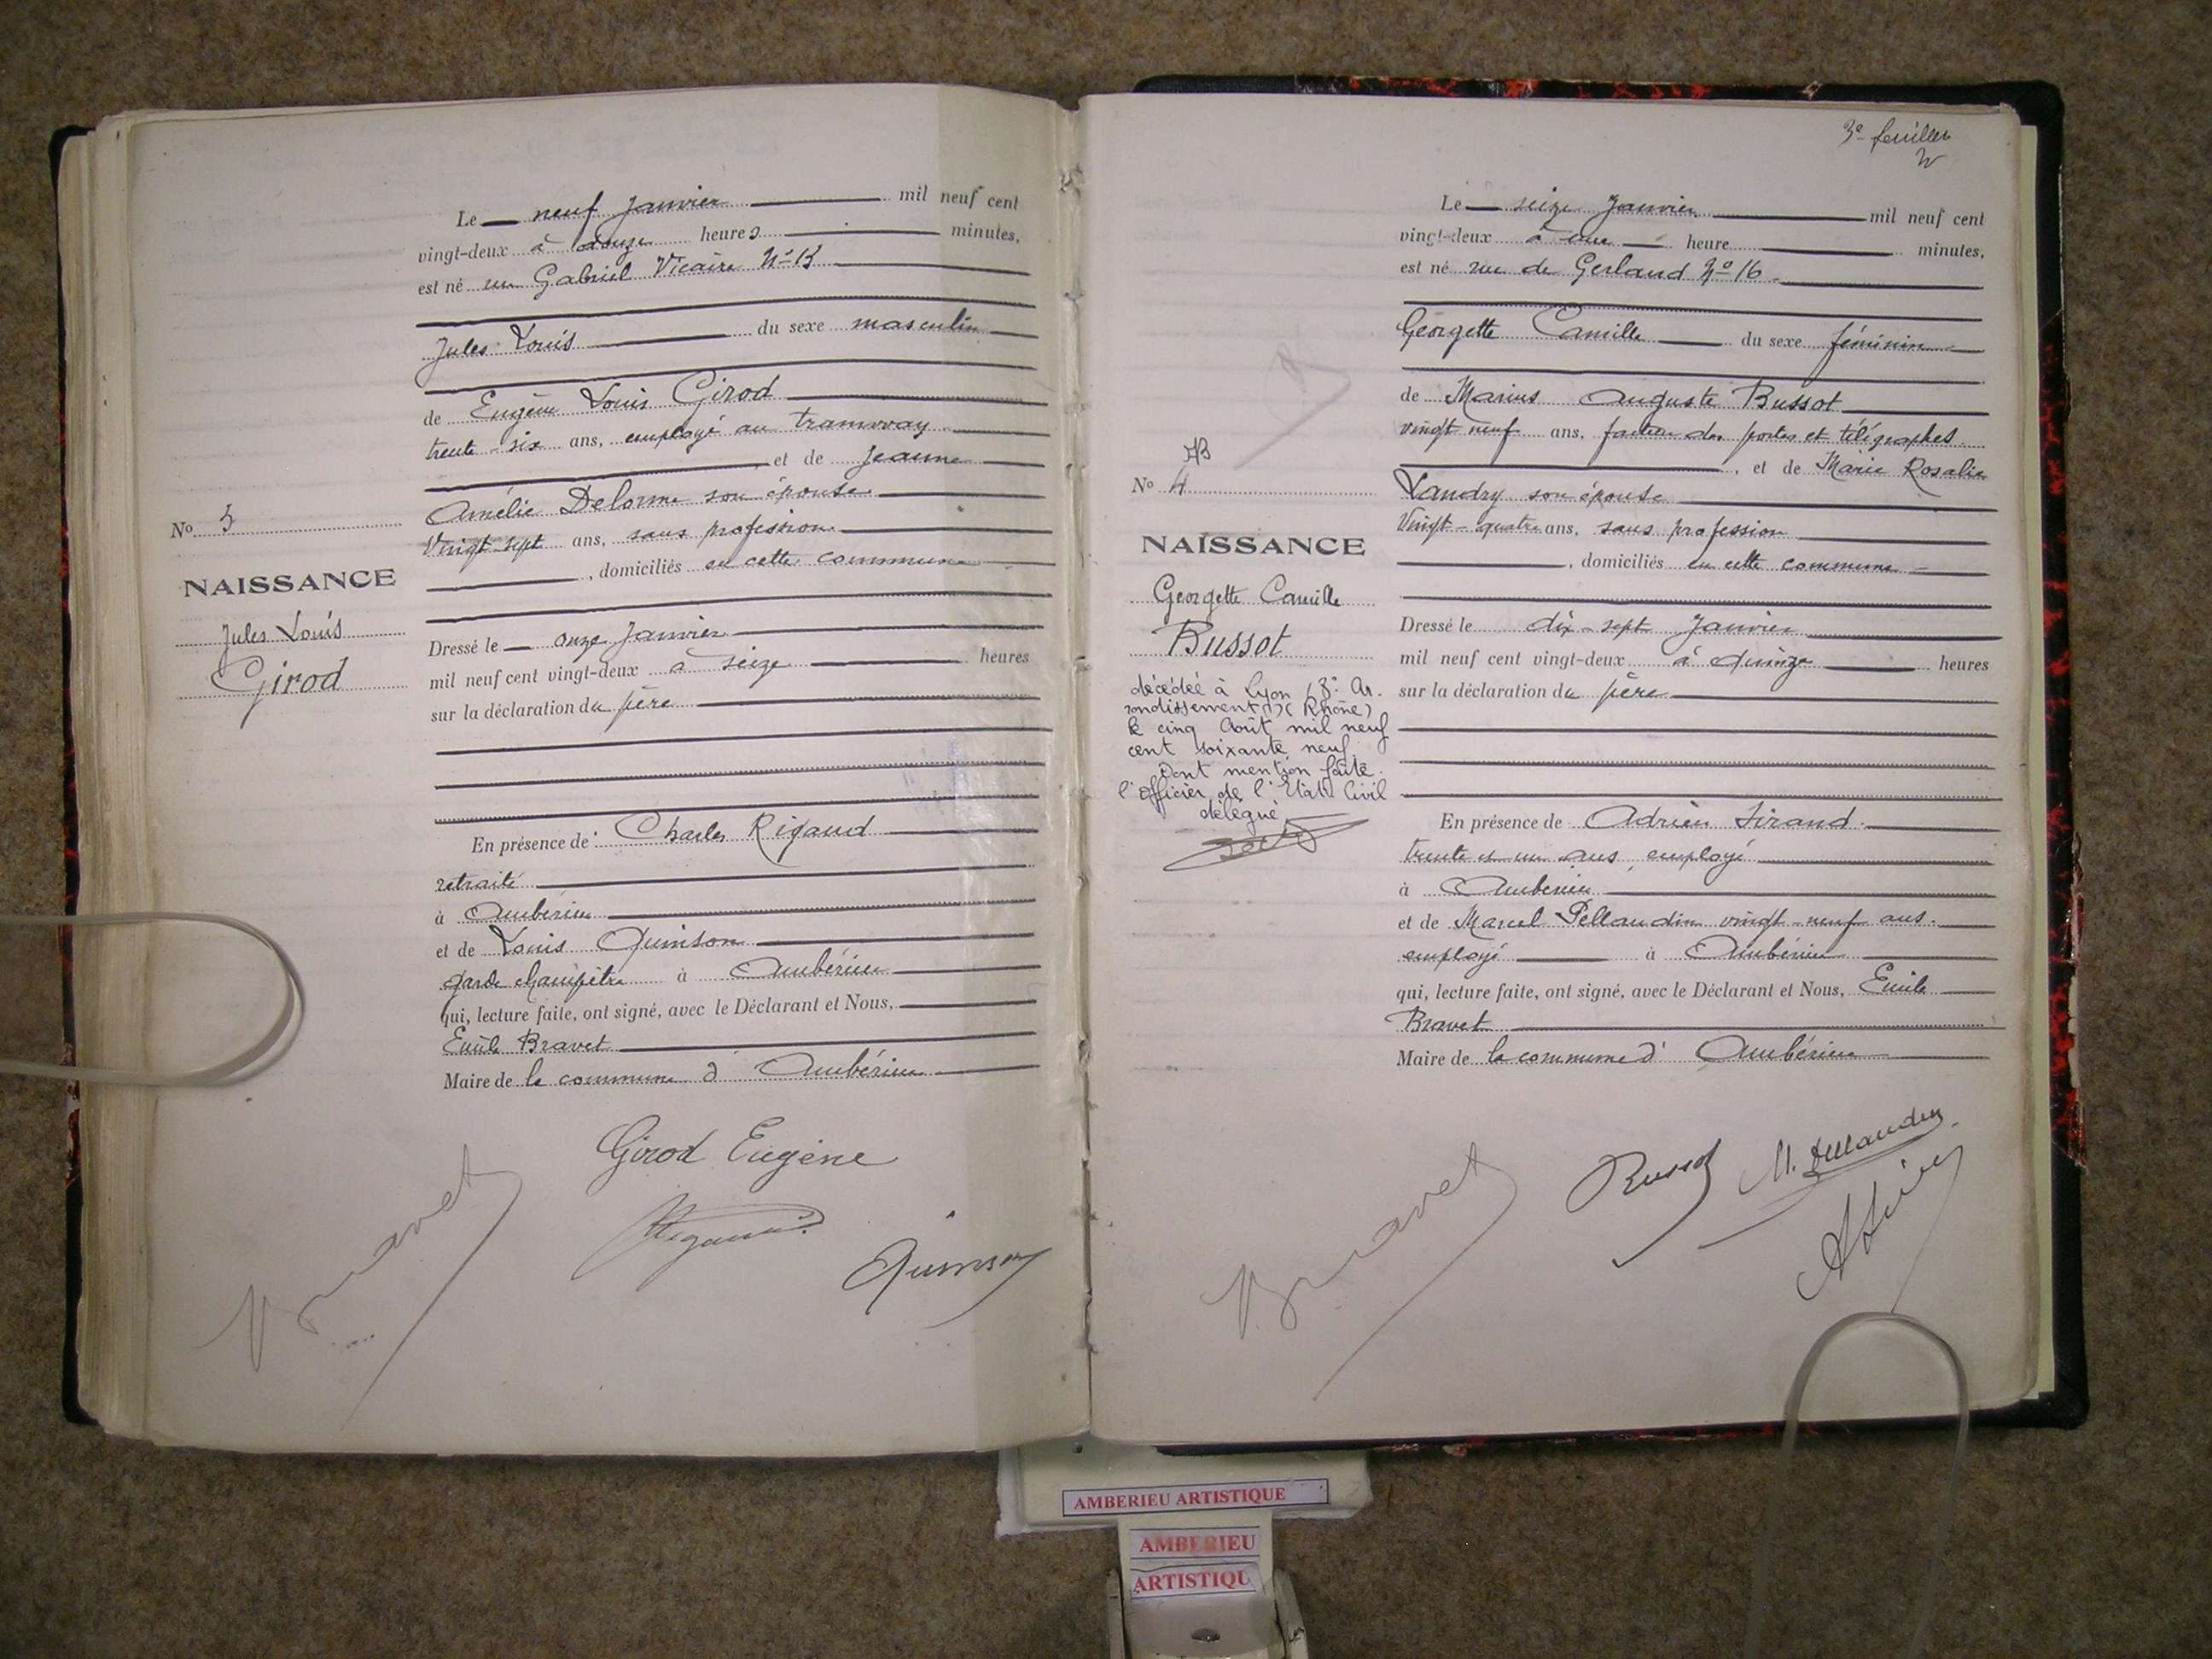 Le neuf Janvier mil neuf cent
vingt-deux à douze heures minutes,
est né rue Gabriel Vicaire No 13
Jules Louis du sexe masculin
de Eugène Louis Girod
trente six ans, employé au tramway
et de Jeanne
Amélie Delorme son épouse
Vingt-sept ans, sans profession
, domiciliés en cette commune
No 3
NAISSANCE
Jules Louis
Girod
Dressé le onze Janvier
mil neuf cent vingt-deux à seize heures
sur la déclaration du père
En présence de Charles Rigaud
retraité
à Ambérieu
et de Louis Quinson
garde champêtre à Ambérieu
qui, lecture faite, ont signé, avec le Déclarant et Nous,
Emile Bravet
Maire de la commune d'Ambérieu
Girod Eugène
Bravet
Rigaud
Quinson
3e feuillet
Le seize Janvier mil neuf cent
vingt-deux à une heure minutes,
est né rue de Gerland No 16
Georgette Camille du sexe féminin
de Marius Auguste Bussot
vingt neuf ans, facteur des postes et télégraphes
, et de Marie Rosalie
Landry son épouse
Vingt-quatre ans, sans profession
, domiciliés en cette commune
No 4
NAISSANCE
Georgette Camille
Bussot
décédée à Lyon, 3e Ar.
rondissement (Rhône)
le cinq Août mil neuf
cent soixante neuf
Dont mention faite.
l'Officier de l'Etat Civil
délégué
Dressé le dix-sept Janvier
mil neuf cent vingt-deux à quinze heures
sur la déclaration du père
En présence de Adrien Sirand
trente et un ans, employé
à Ambérieu
et de Marcel Pellaudin vingt-neuf ans
employé à Ambérieu
qui, lecture faite, ont signé, avec le Déclarant et Nous, Emile
Bravet
Maire de la commune d'Ambérieu
Bravet
Bussot
AMBERIEU ARTISTIQUE
AMBERIEU
ARTISTIQU